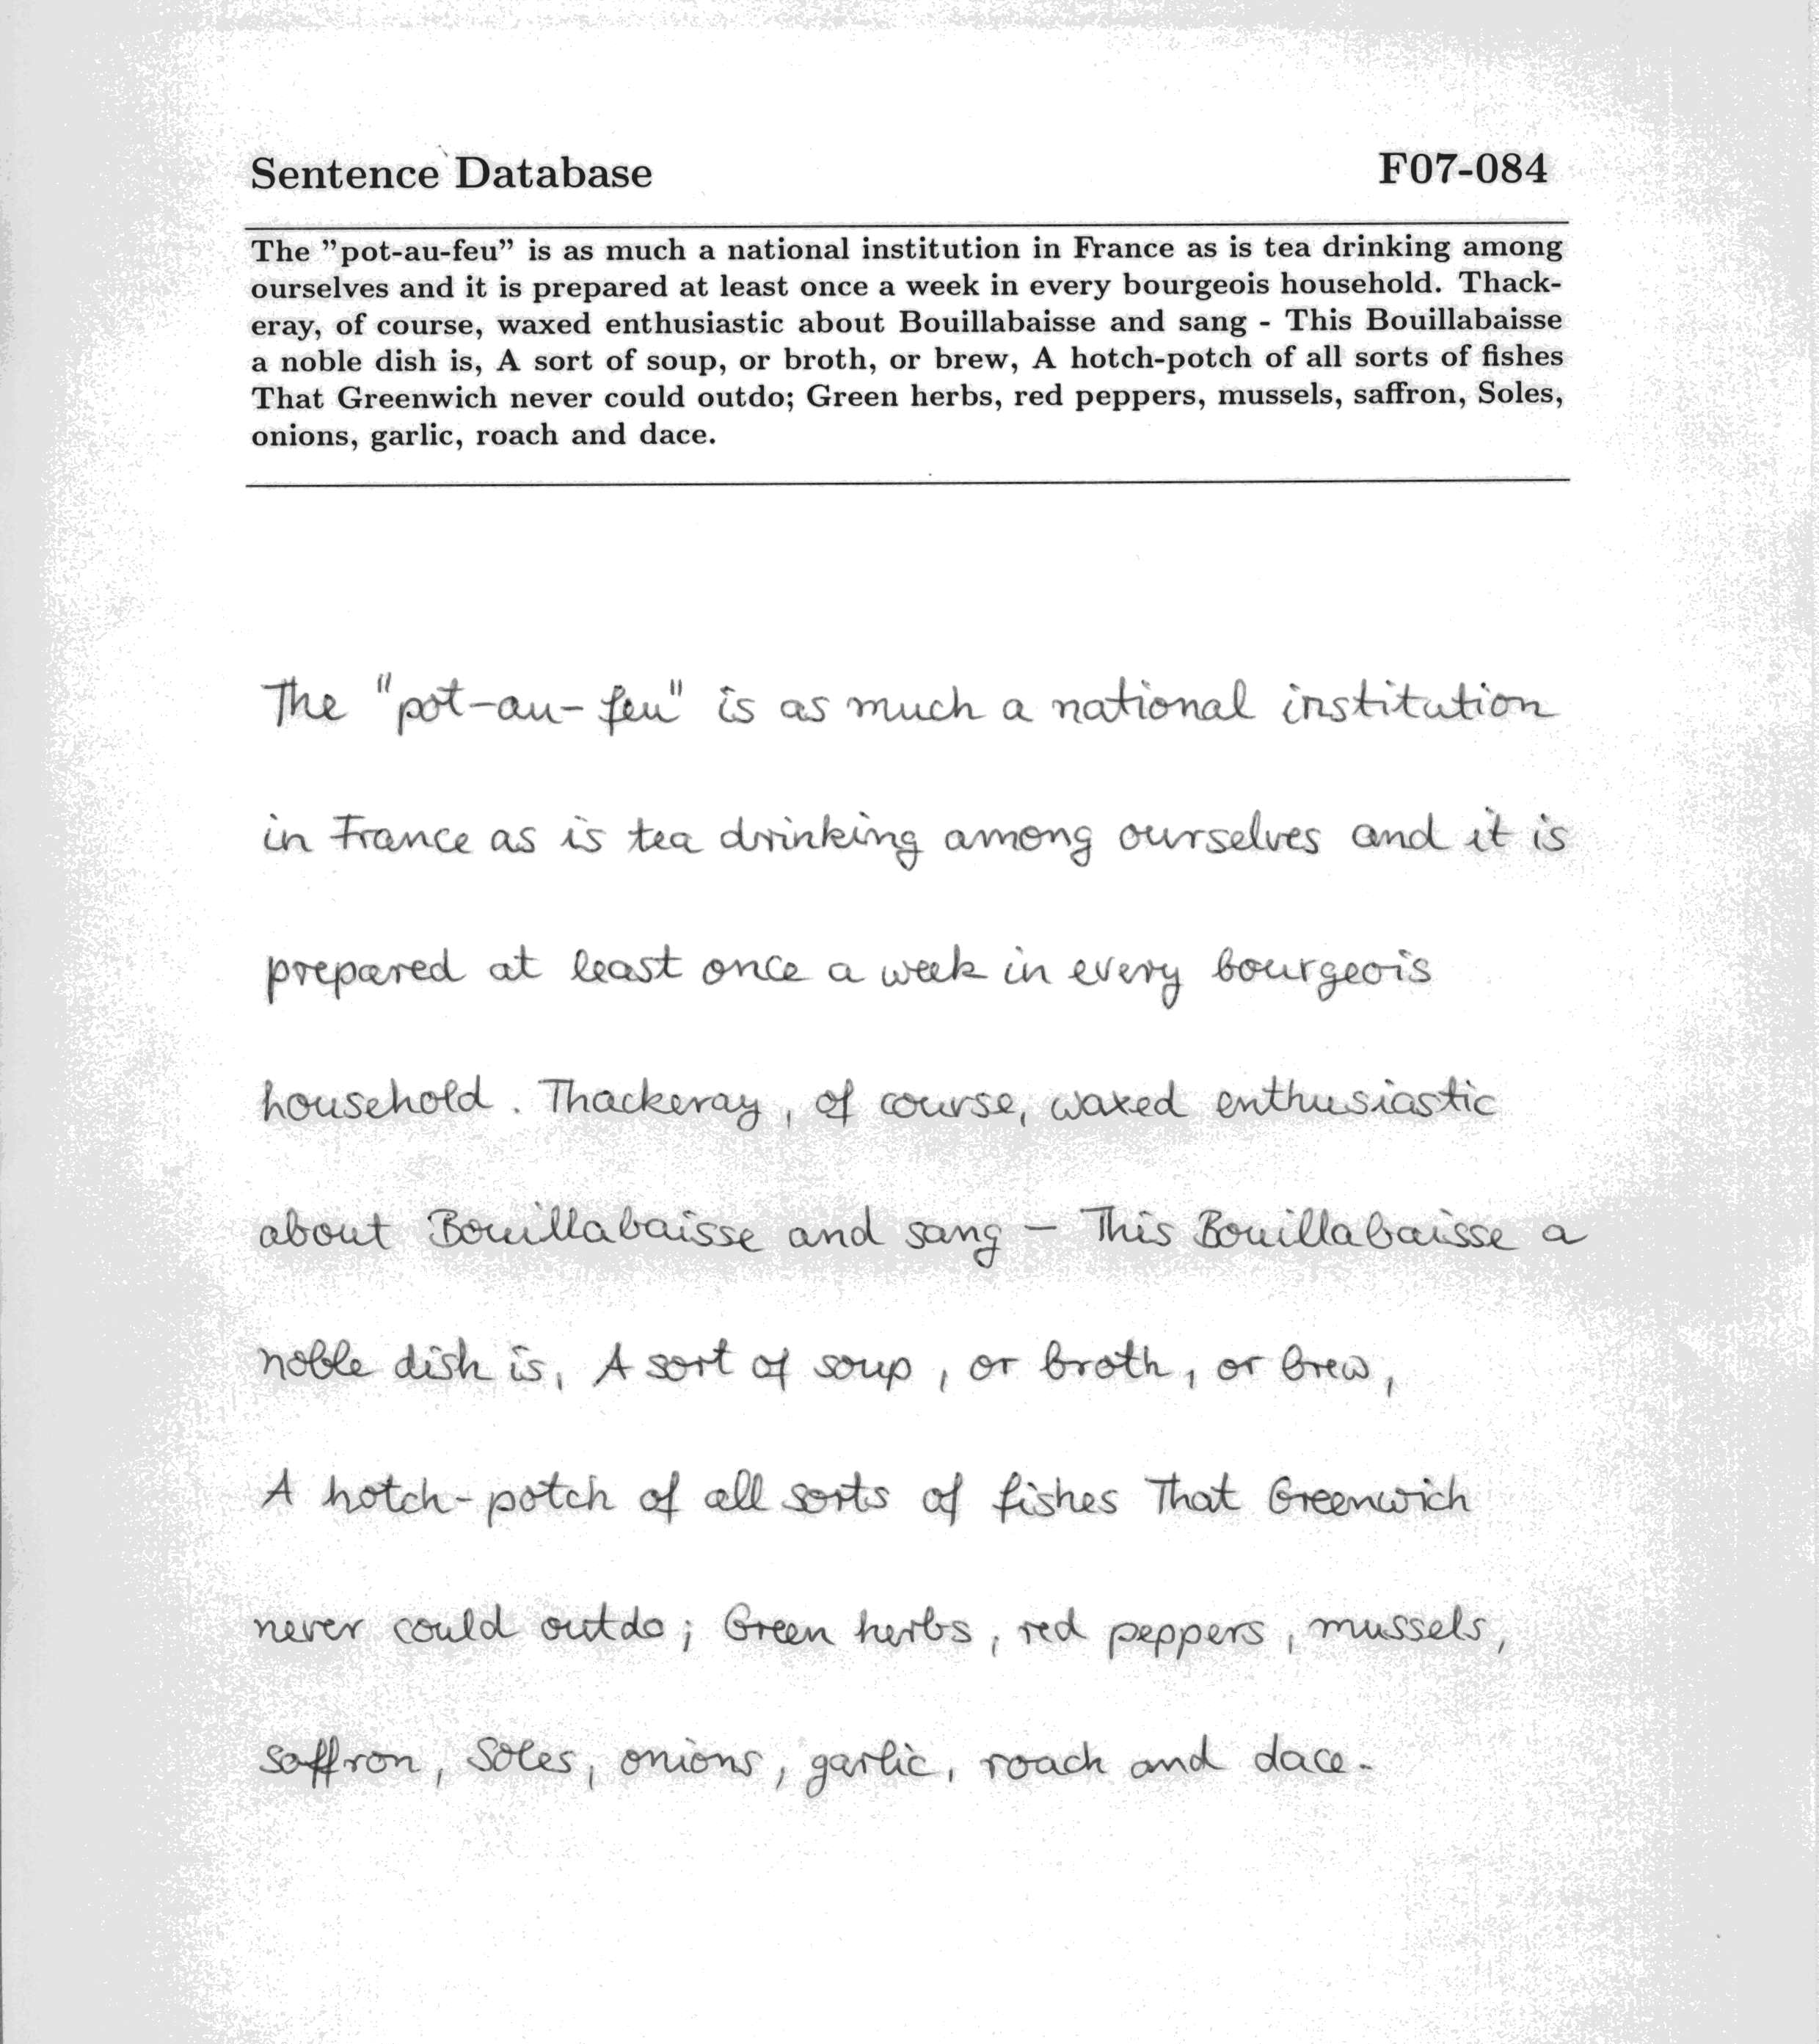 Sentence Database F07-084
The "pot-au-feu" is as much a national institution in France as is tea drinking among
ourselves and it is prepared at least once a week in every bourgeois household. Thack-
eray, of course, waxed enthusiastic about Bouillabaisse and sang - This Bouillabaisse
a noble dish is, A sort of soup, or broth, or brew, A hotch-potch of all sorts of fishes
That Greenwich never could outdo; Green herbs, red peppers, mussels, saffron, Soles,
onions, garlic, roach and dace.
The "pot-au-feu" is as much a national institution
in France as is tea drinking among ourselves and it is
prepared at least once a week in every bourgeois
household. Thackeray, of course, waxed enthusiastic
about Bouillabaisse and sang - This Bouillabaisse a
noble dish is, A sort of soup, or broth, or brew,
A hotch-potch of all sorts of fishes That Greenwich
never could outdo; Green herbs, red peppers, mussels,
saffron, Soles, onions, garlic, roach and dace.